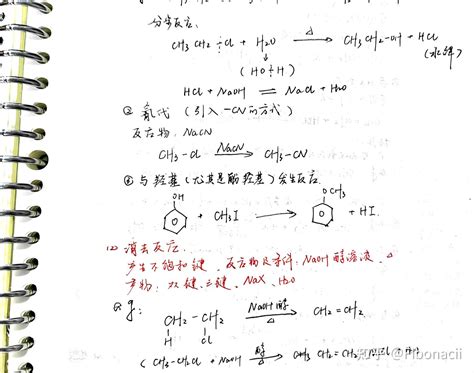 分步反应.
CH3 CH2 Cl + H2O → △ CH3CH2-OH + HCl
(HO H) (水解)
HCl + NaOH ⇌ NaCl + H2O
② 氰代 (引入 -CN 的方式)
反应物: NaCN
CH3-Cl NaCN → CH3-CN
④ 与羟基 (尤其是酚羟基) 发生反应.
OH OCH3
+ CH3I → + HI.
(2) 消去反应:
产生不饱和键. 反应物及条件: NaOH醇溶液. △
产物: 双键、三键、NaX、H2O
e.g: CH2-CH2 NaOH 醇 → △ CH2=CH2
H Cl
(CH3-CH2Cl + NaOH 醇 → △
知乎 @Fibonacii